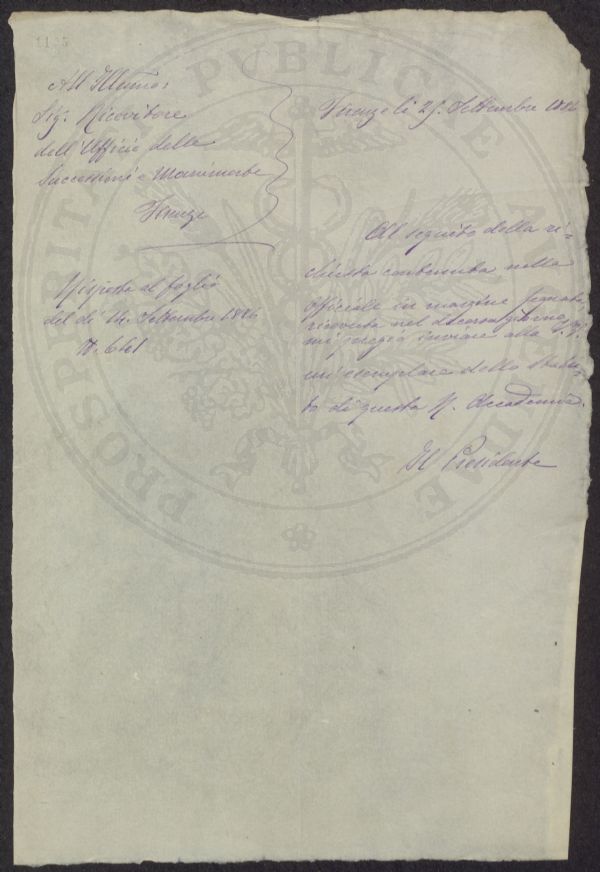 All'Illumo:
Sig: Ricevitore
dell'Uffizio delle
Successioni e Manimorte
Firenze
Risposta al foglio
del dì 14. Settembre 1886
N. 661
Firenze li 25. Settembre 1886
Al seguito della ri=
chiesta contenuta nella
Officiale in margine segnata
ricevuta nel decorso giorno
mi pregio inviare alla S. V.
un esemplare dello Statu=
to di questa R. Accademia.
Il Presidente
PROSPERITATI PUBLICAE AUGENDAE